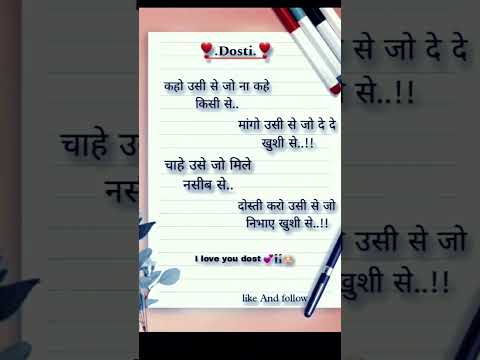 .Dosti.
कहो उसी से जो ना कहे
किसी से..
मांगो उसी से जो दे दे
खुशी से..!!
चाहे उसे जो मिले
नसीब से..
दोस्ती करो उसी से जो
निभाए खुशी से..!!
I love you dost 💞👬🥰
like And follow
से जो दे दे
से..!!
चाहे उ
नसी
उसी से जो
खुशी से..!!